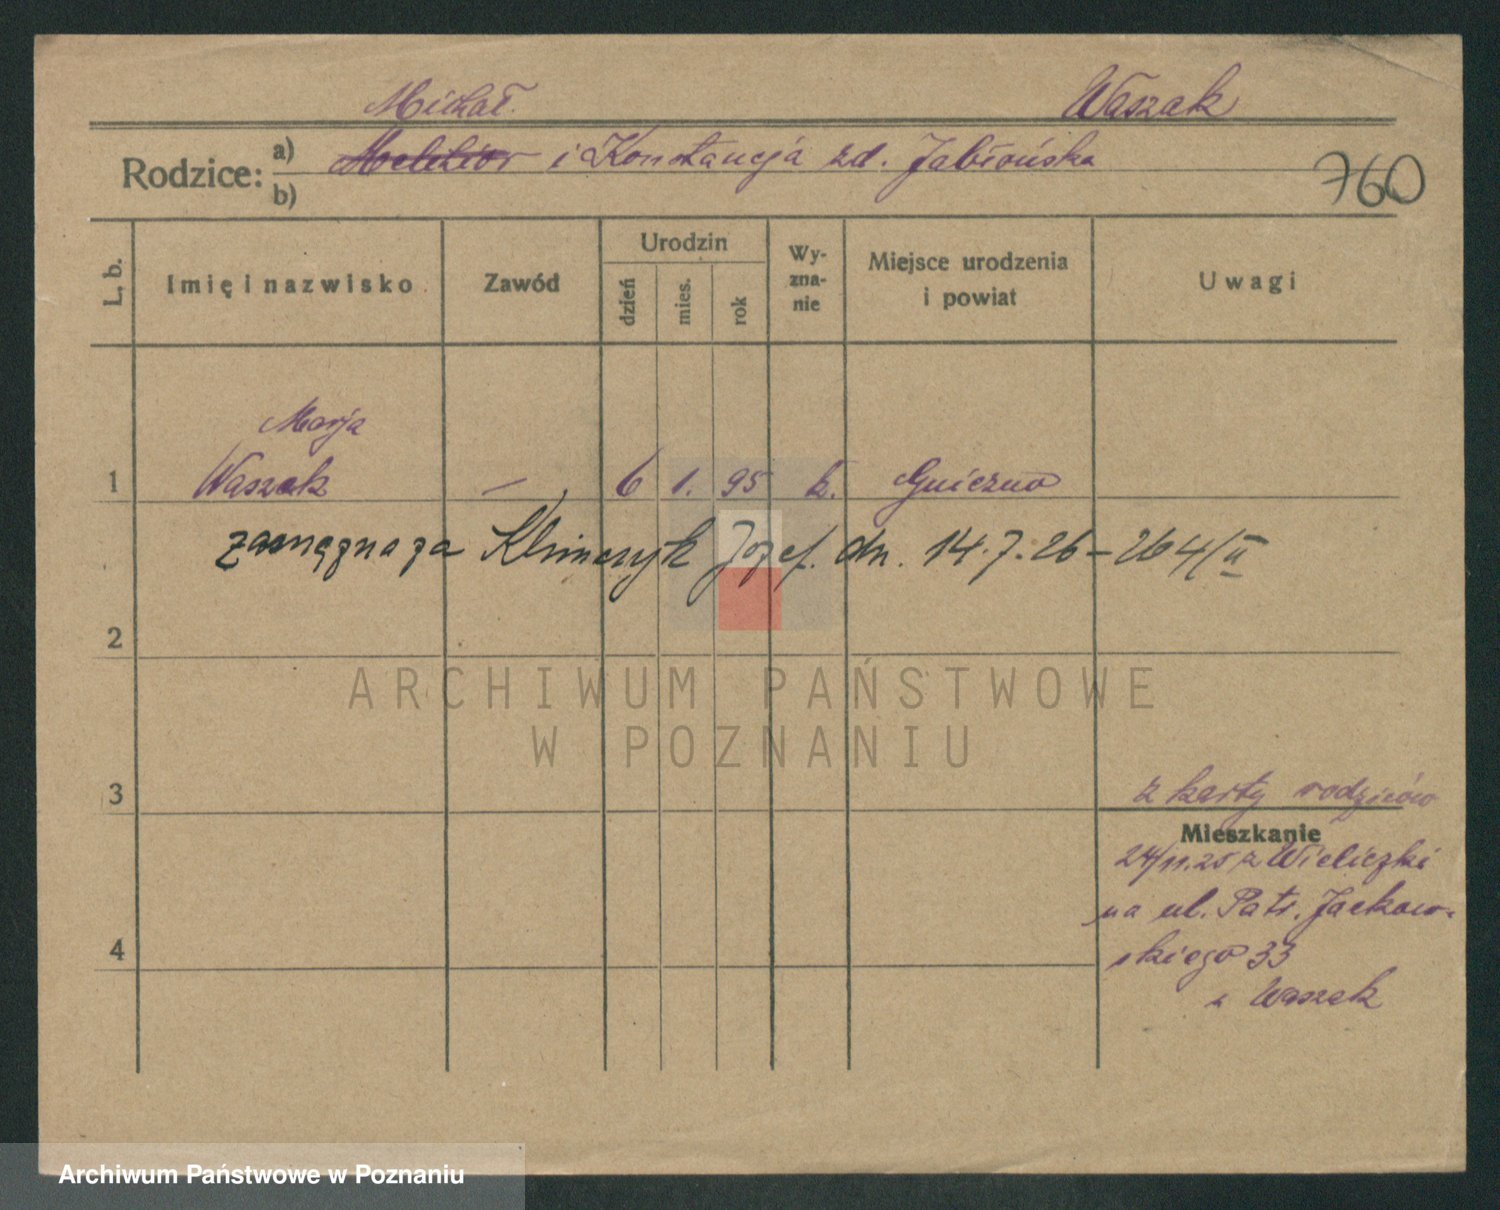 Michał Waszak
Rodzice: a) Melchior i Konstancja zd. Jabłońska
b)
760
L. b. Imię i nazwisko Zawód Urodzin dzień mies. rok Wy-zna-nie Miejsce urodzenia i powiat Uwagi
Marja
1 Waszak — 6 1. 95 k. Gniezno
Klimczyk Józef. dn. 14.7.26 – 264/II
2
ARCHIWUM PAŃSTWOWE
W POZNANIU
3 z karty rodziców
Mieszkanie
24/11.25 z Wieliczki
na ul. Patr. Jackow-
4 skiego 33
Waszak
Archiwum Państwowe w Poznaniu